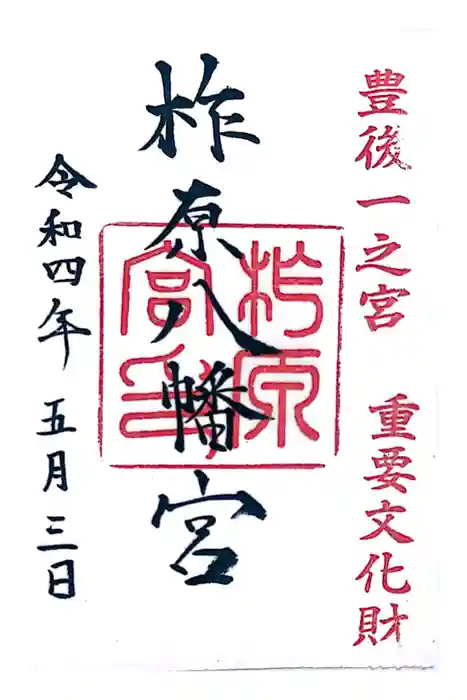 豊後一之宮 重要文化財
柞原八幡宮
柞原
宮印
令和四年 五月三日